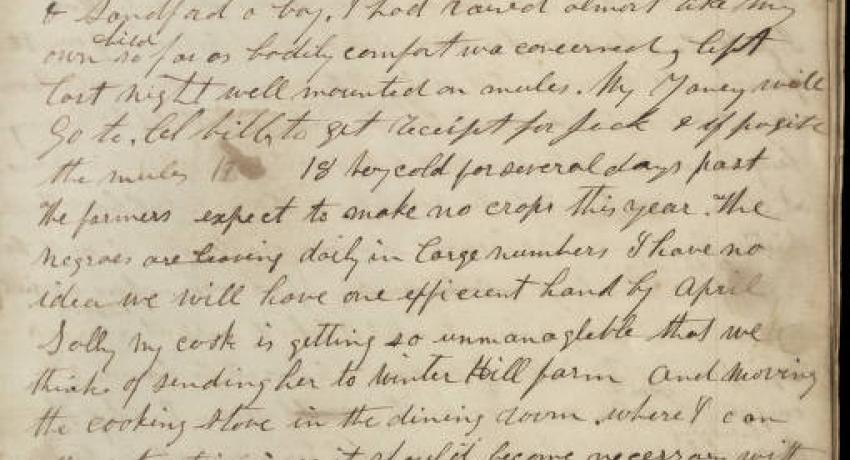 & Sandford a boy, I had raised almost like my
own child so far as bodily comfort wa concerned, left
last night well mounted on mules. My Yancy will
go to. Col to get receipt for Jack & if possible
the mules 17 18 Very cold for several days past
The farmers expect to make no crops this year. The
negroes are leaving daily in large numbers I have no
idea we will have one efficient hand by April
Solly my cook is getting so unmanagleble that we
think of sending her to Winter Hill farm and moving
the cooking stove in the dining room, where I can
it should become necessary with